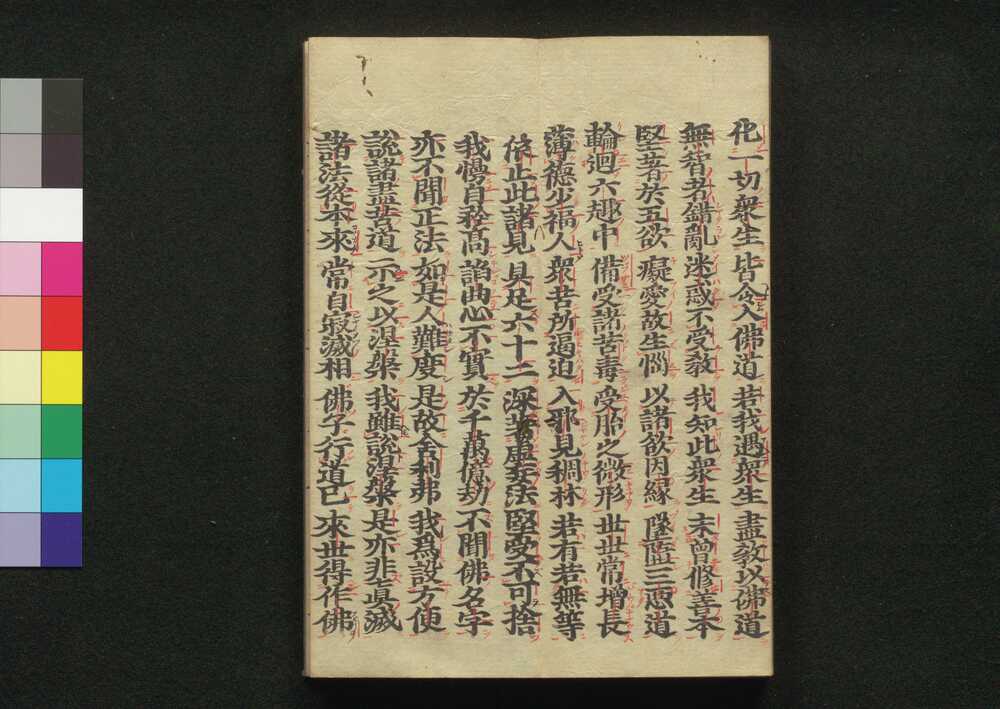 化一切衆生皆令入佛道若我遇衆生盡敎以佛道
無智者錯亂迷惑不受敎我知此衆生未曾修善本
堅著於五欲癡愛故生惱以諸欲因緣墜墮三惡道
輪迴六趣中備受諸苦毒受胎之微形世世常增長
薄德少福人衆苦所逼迫入邪見稠林若有若無等
依止此諸見具足六十二深著虛妄法堅受不可捨
我慢自矜高諂曲心不實於千萬億劫不聞佛名字
亦不聞正法如是人難度是故舍利弗我爲設方便
說諸盡苦道示之以涅槃我雖說涅槃是亦非眞滅
諸法從本來常自寂滅相佛子行道已來世得作佛